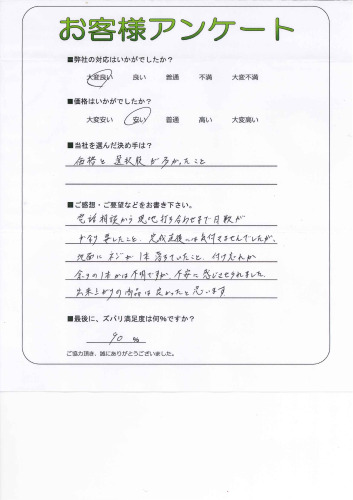 お客様アンケート
■弊社の対応はいかがでしたか?
大変良い 良い 普通 不満 大変不満
■価格はいかがでしたか?
大変安い 安い 普通 高い 大変高い
■当社を選んだ決め手は?
価格と選択肢が多かったこと
■ご感想・ご要望などをお書き下さい。
電話相談から現地打ち合わせまで日数が
要したこと、完成直後には気付きませんでしたが、
地面にネジが1本落ちていたこと、付け忘れか
余りの1本かは不明ですが、不安に感じさせられました。
出来上がりの商品は良かったと思います
■最後に、ズバリ満足度は何%ですか?
90 %
ご協力頂き、誠にありがとうございました。